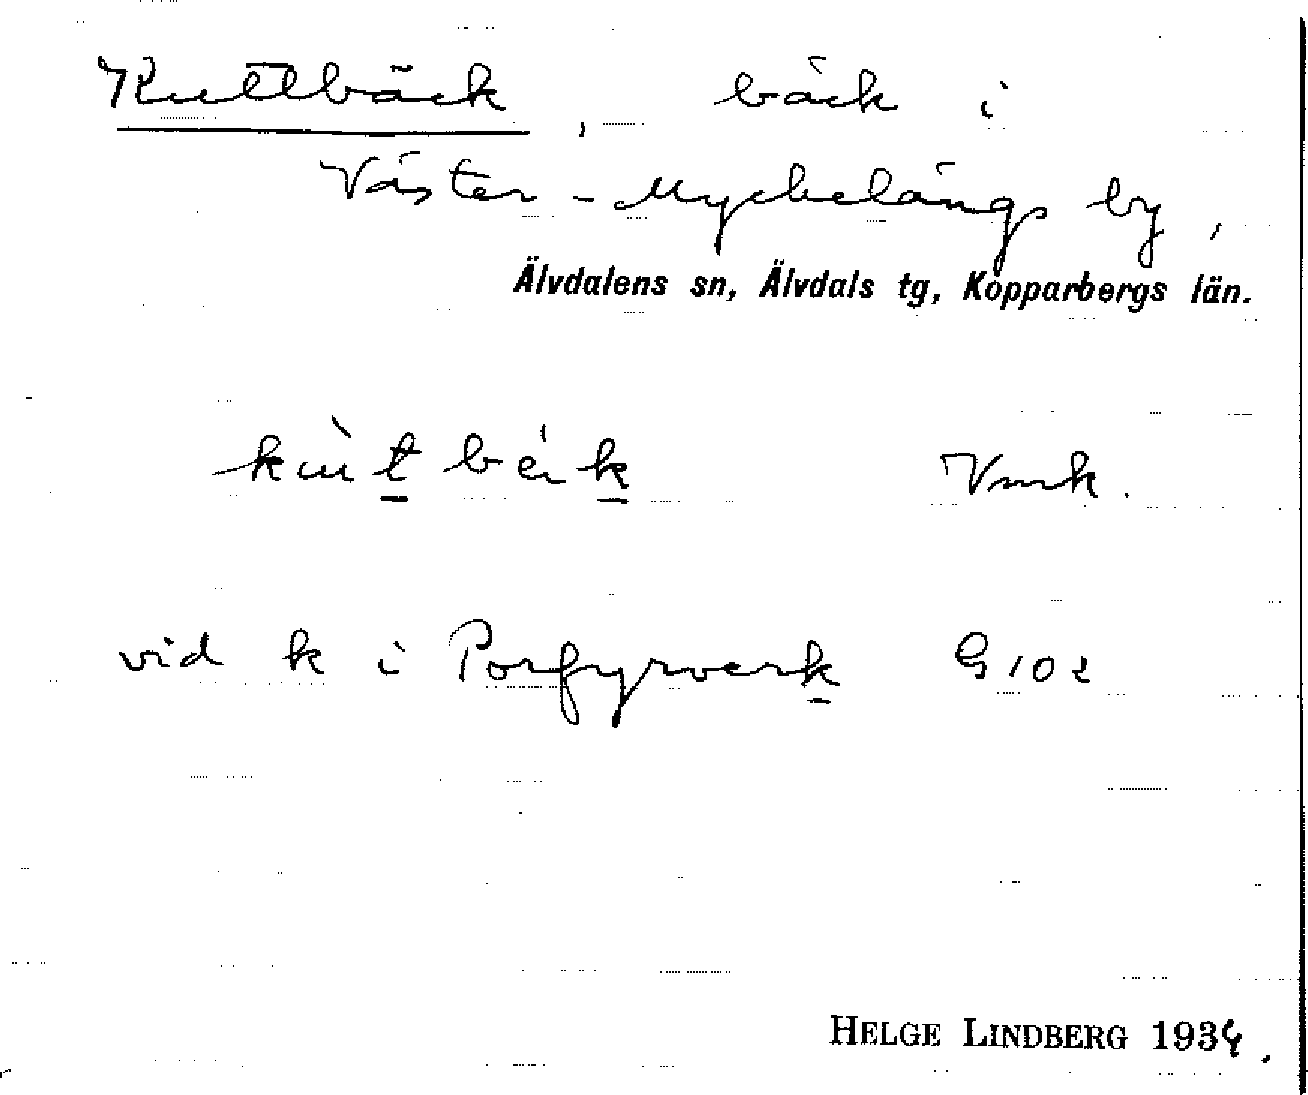 Kuttbäck, bäck i
Väster-Myckelängs by,
Älvdalens sn, Älvdals tg, Kopparbergs län.
kùt bék Vmk.
vid k i Porfyrverk G 10 c
HELGE LINDBERG 1934.